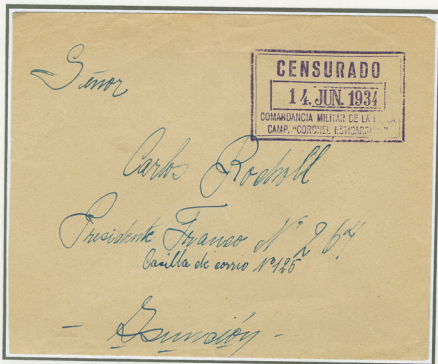 Señor
CENSURADO
14. JUN. 1934
COMANDANCIA MILITAR DE LA
CAMP. "CORONEL
Carlos
Presidente Franco Nº 267
Casilla de correo Nº 126
- Asunción -